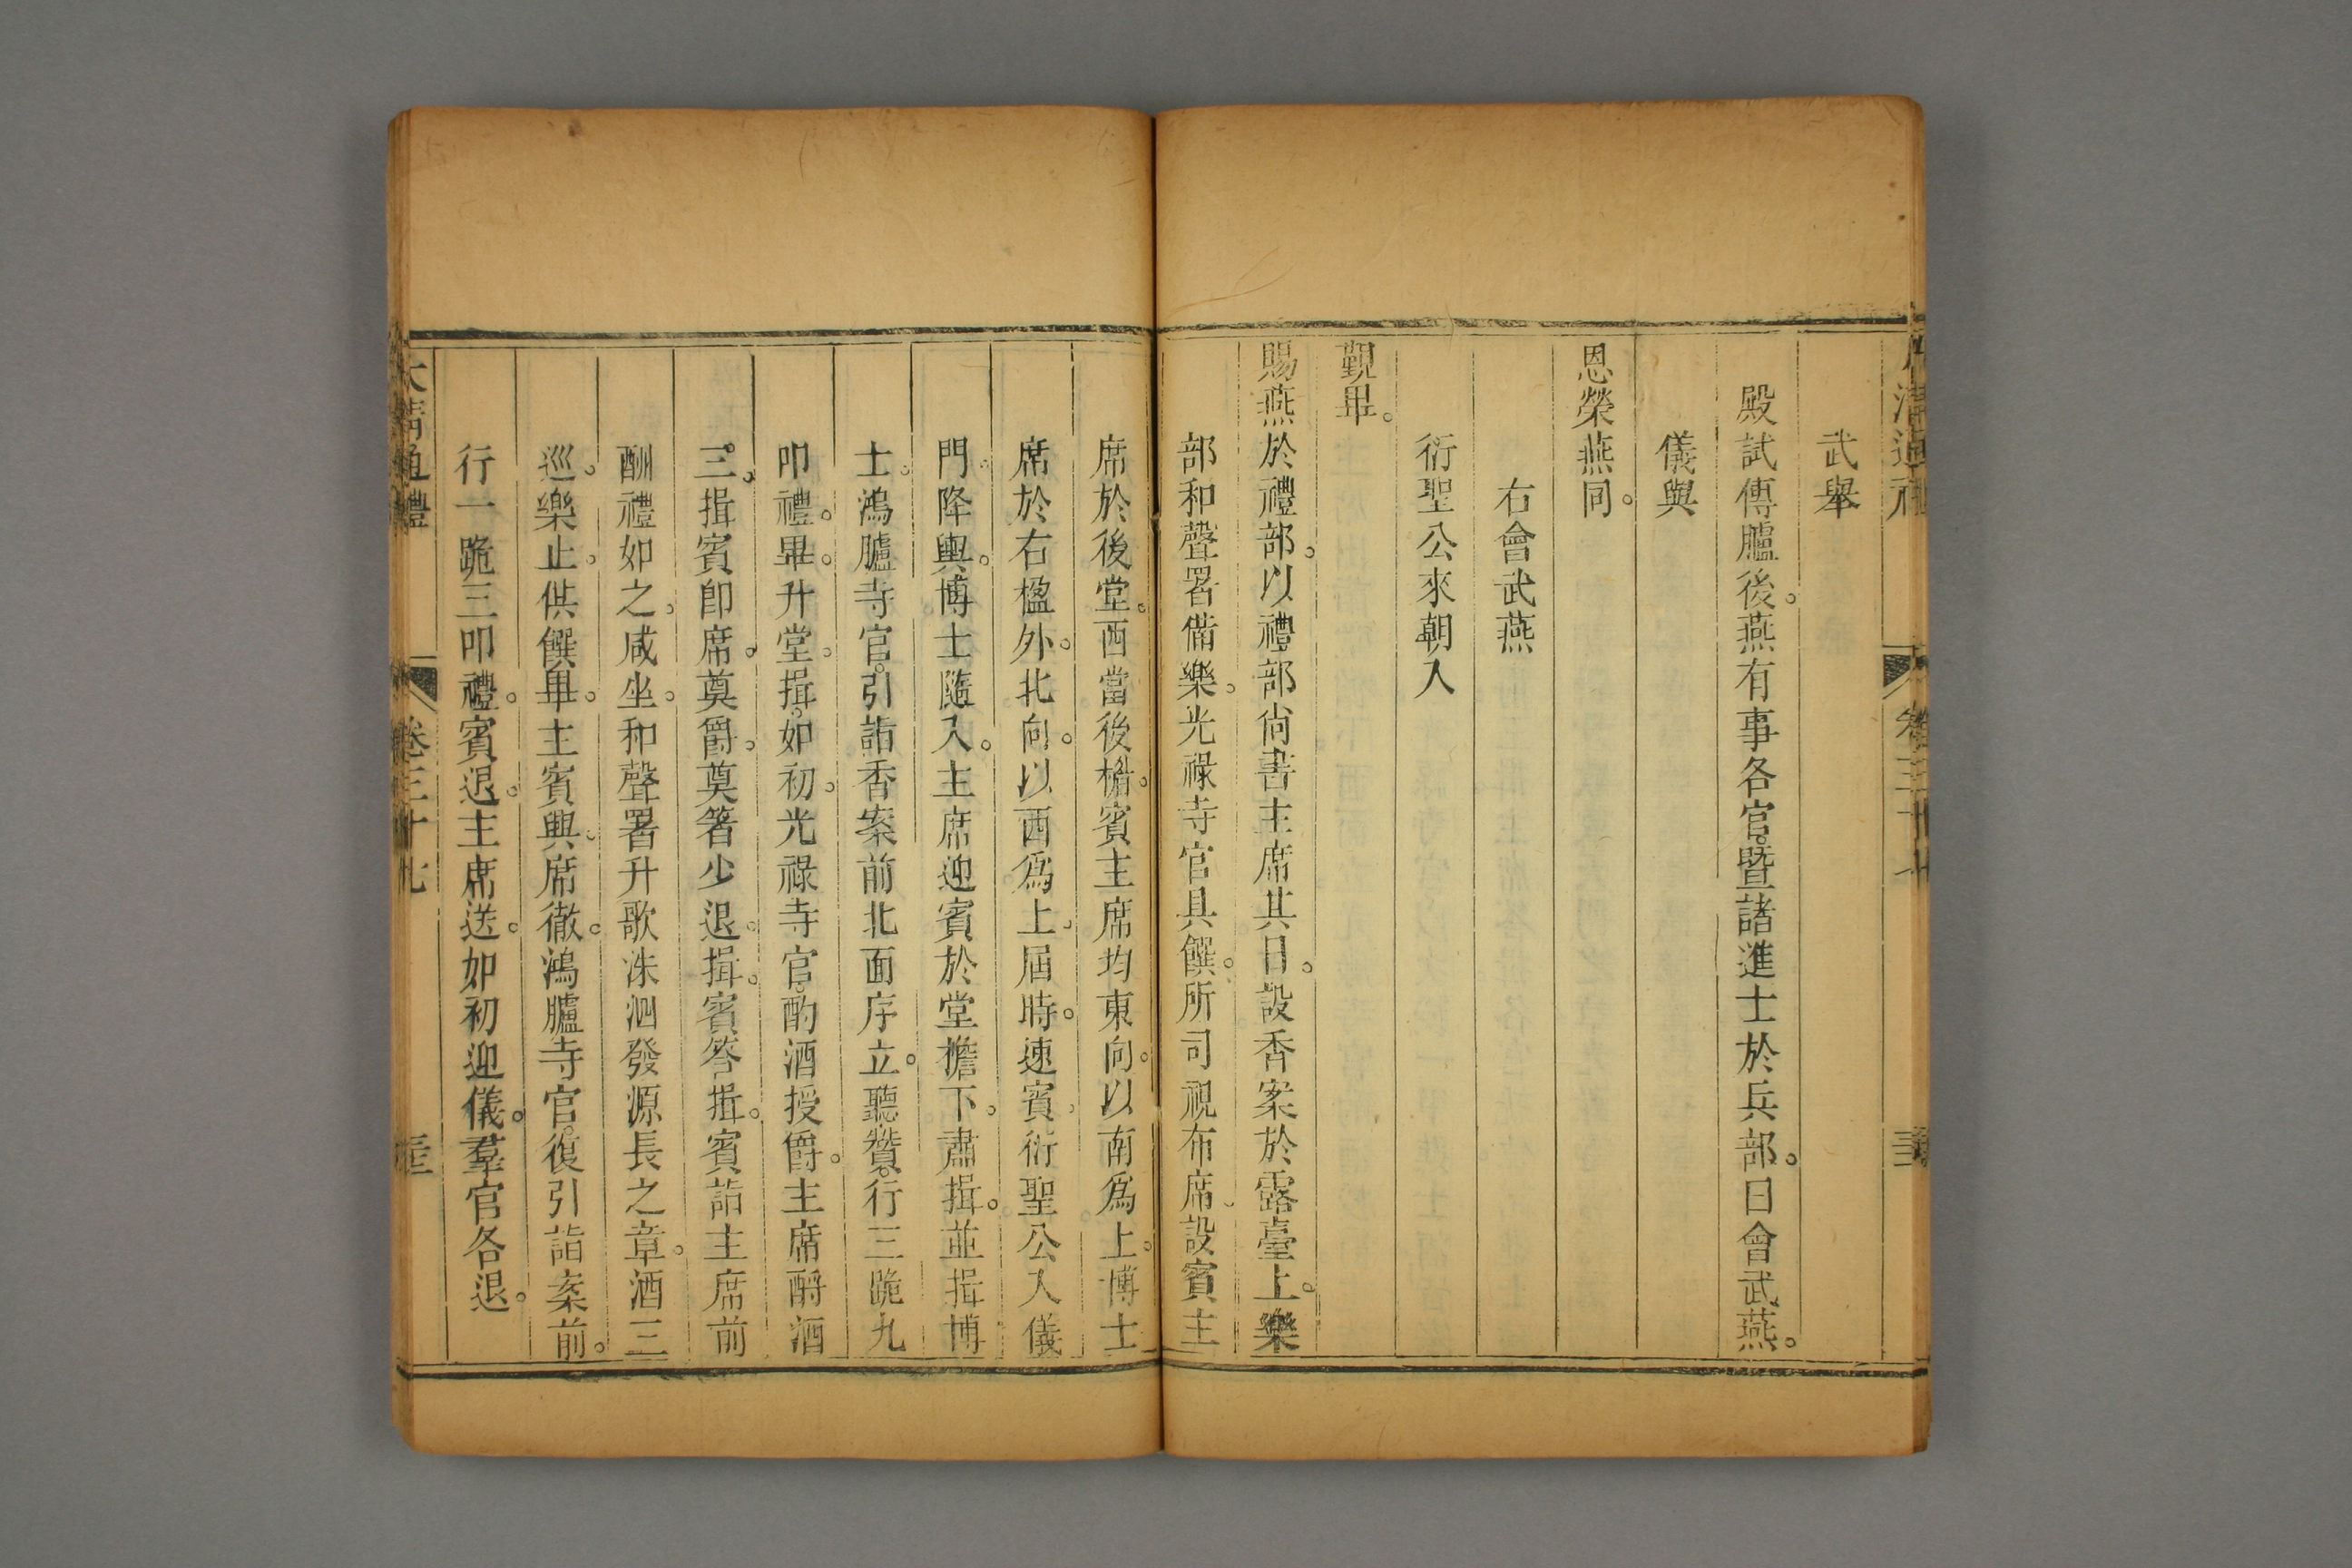 武舉
殿試傳臚後。燕有事各官。暨諸進士於兵部。日會武燕。
儀與
恩榮燕同。
右會武燕
衍聖公來朝入
覲畢。
賜燕於禮部。以禮部尚書主席其日。設香案於露臺上。樂
部和聲署備樂。光祿寺官具饌。所司視布席。設賓主
席於後堂。西當後檐。賓主席均東向。以南爲上。博士
席於右楹外。北向。以西爲上。屆時。速賓。衍聖公入儀
門。降輿。博士隨入。主席迎賓於堂檐下。肅揖。並揖博
士。鴻臚寺官。引詣香案前北面序立。聽贊。行三跪九
叩禮。畢。升堂。揖。如初。光祿寺官。酌酒授爵。主席酹酒
三。揖賓卽席。奠爵。奠箸少退。揖。賓答揖。賓詣主席前
酬禮如之。咸坐。和聲署升歌洙泗發源長之章。酒三
巡。樂止。供饌畢。主賓興。席徹。鴻臚寺官。復引詣案前。
行一跪三叩禮。賓退。主席送。如初迎儀。羣官各退。
大淸通禮 卷三十九